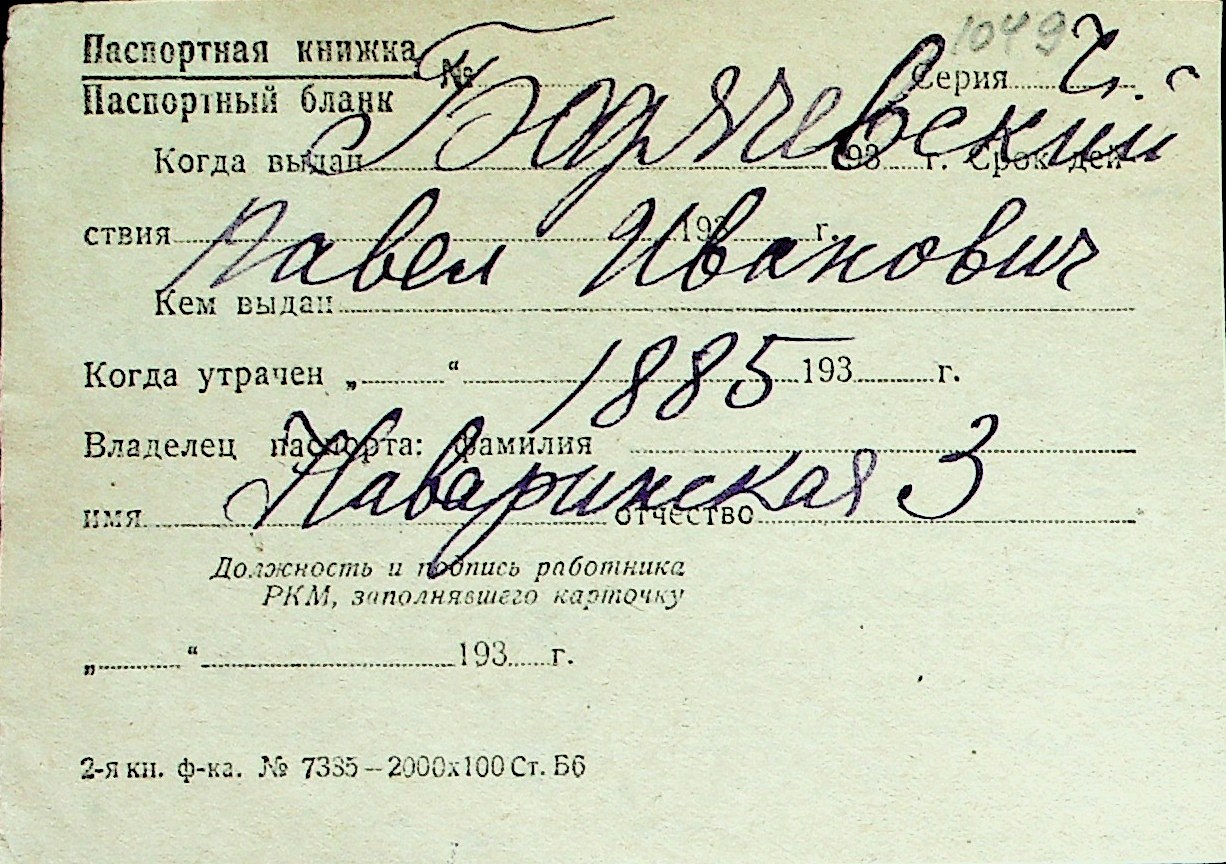 1049
Паспортная книжка
Паспортный бланк № Серия
Борячевский
Когда выдан 193 г. Срок дей
ствия 193 г.
Павел Иванович
Кем выдан
Когда утрачен „ “ 193 г.
1885
Владелец паспорта: фамилия
Наваринская 3
имя отчество
Должность и подпись работника
РКМ, заполнявшего карточку
„ “ 193 г.
2-я кн. ф-ка. № 7385 – 2000х100 Ст. Б6